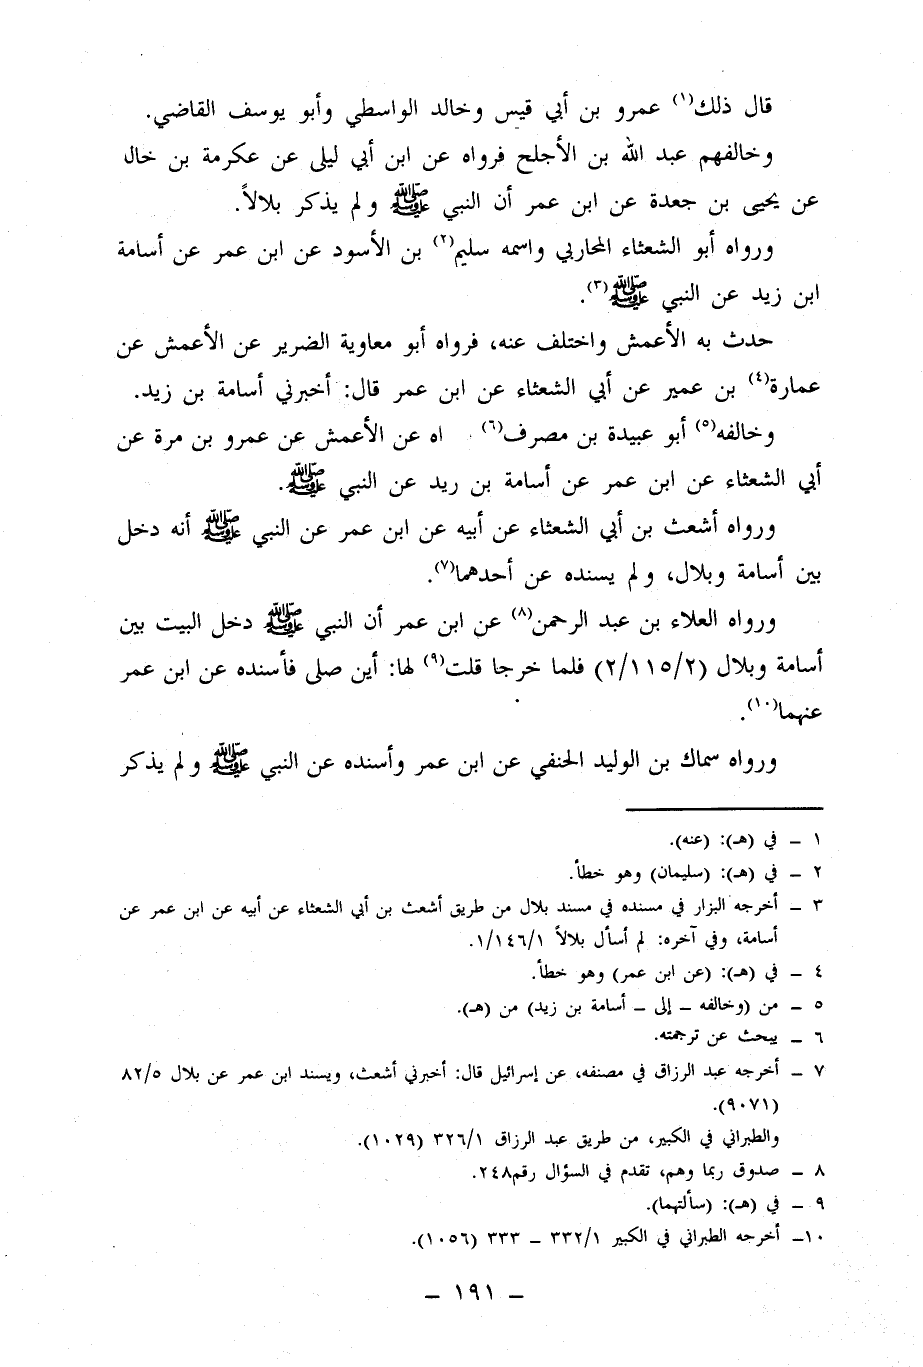 قال ذلك(١) عمرو بن أبي قيس وخالد الواسطي وأبو يوسف القاضي.
وخالفهم عبد الله بن الأجلح فرواه عن ابن أبي ليلى عن عكرمة بن خال
عن يحيى بن جعدة عن ابن عمر أن النبي ﷺ ولم يذكر بلالاً.
ورواه أبو الشعثاء المحاربي واسمه سليم(٢) بن الأسود عن ابن عمر عن أسامة
ابن زيد عن النبي ﷺ(٣).
حدث به الأعمش واختلف عنه، فرواه أبو معاوية الضرير عن الأعمش عن
عمارة(٤) بن عمير عن أبي الشعثاء عن ابن عمر قال: أخبرني أسامة بن زيد.
وخالفه(٥) أبو عبيدة بن مصرف(٦) اه عن الأعمش عن عمرو بن مرة عن
أبي الشعثاء عن ابن عمر عن أسامة بن ريد عن النبي ﷺ.
ورواه أشعث بن أبي الشعثاء عن أبيه عن ابن عمر عن النبي ﷺ أنه دخل
بين أسامة وبلال، ولم يسنده عن أحدهما(٧).
ورواه العلاء بن عبد الرحمن(٨) عن ابن عمر أن النبي ﷺ دخل البيت بين
أسامة وبلال (٢/١١٥/٢) فلما خرجا قلت(٩) لها: أين صلى فأسنده عن ابن عمر
عنهما(١٠).
ورواه سماك بن الوليد الحنفي عن ابن عمر وأسنده عن النبي ﷺ ولم يذكر
١ ــ في (هـ): (عنه).
٢ ــ في (هـ): (سليمان) وهو خطأ.
٣ ــ أخرجه البزار في مسنده في مسند بلال من طريق أشعث بن أبي الشعثاء عن أبيه عن ابن عمر عن
أسامة، وفي آخره: لم أسأل بلالاً ١/١٤٦/١.
٤ ــ في (هـ): (عن ابن عمر) وهو خطأ.
٥ ــ من (وخالفه ــ إلى ــ أسامة بن زيد) من (هـ).
٦ ــ يبحث عن ترجمته.
٧ ــ أخرجه عبد الرزاق في مصنفه، عن إسرائيل قال: أخبرني أشعث، ويسند ابن عمر عن بلال ٨٢/٥
(٩٠٧١).
والطبراني في الكبير، من طريق عبد الرزاق ٣٢٦/١ (١٠٢٩).
٨ ــ صدوق ربما وهم، تقدم في السؤال رقم٢٤٨.
٩ ــ في (هـ): (سألتهما).
١٠ــ أخرجه الطبراني في الكبير ٣٣٢/١ ــ ٣٣٣ (١٠٥٦).
ــ ١٩١ ــ